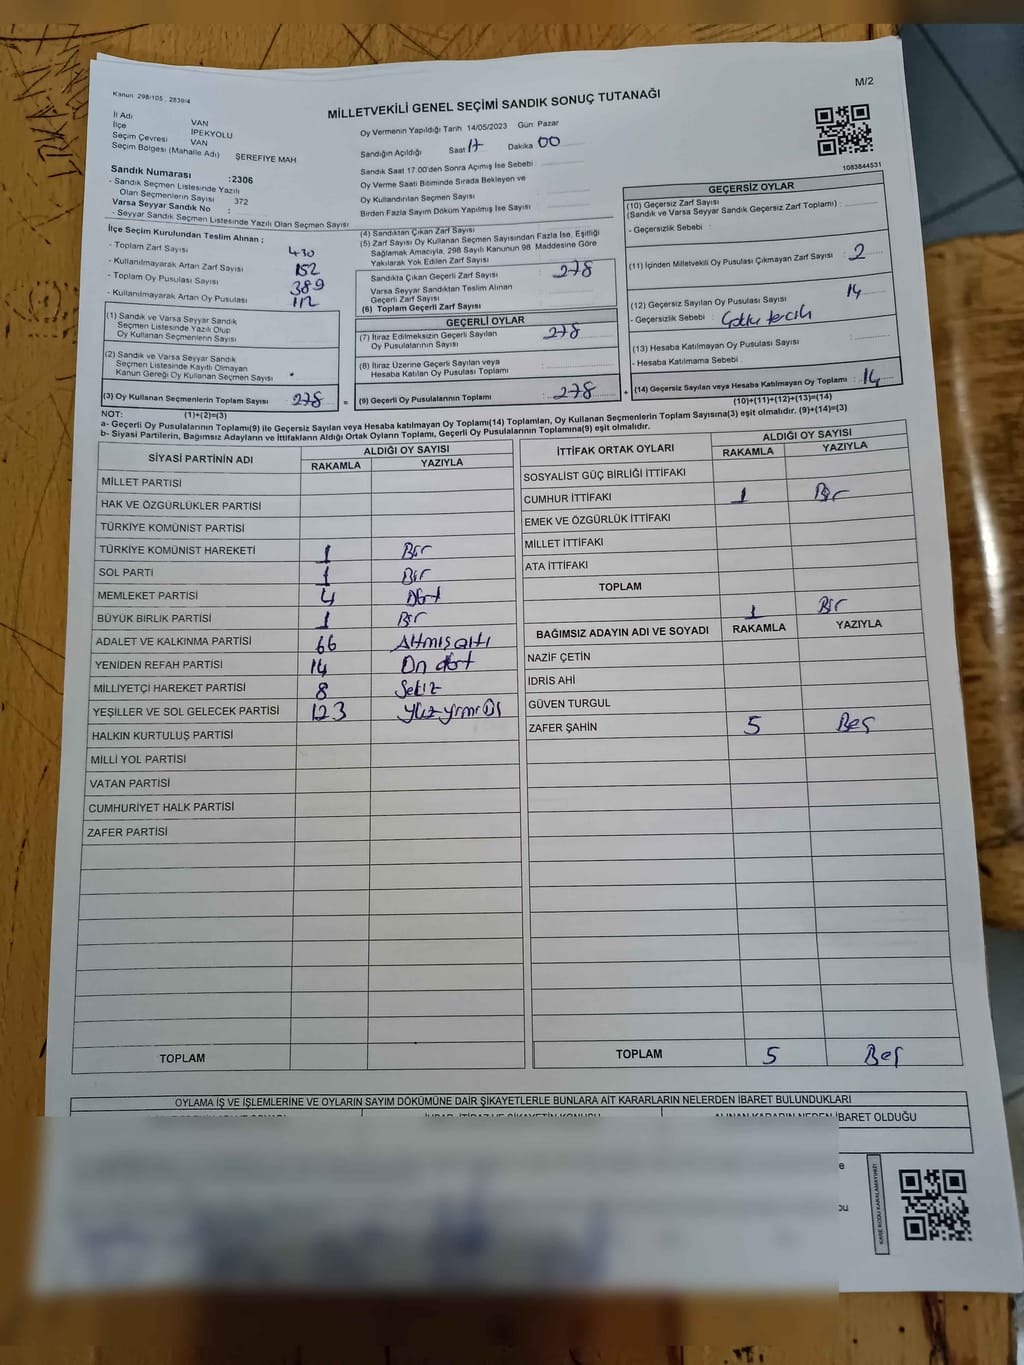 Kanun 298/105 , 2839/4
M/2
MİLLETVEKİLİ GENEL SEÇİMİ SANDIK SONUÇ TUTANAĞI
İl Adı VAN
İlçe İPEKYOLU
Seçim Çevresi VAN
Seçim Bölgesi (Mahalle Adı) ŞEREFİYE MAH
Oy Vermenin Yapıldığı Tarih 14/05/2023 Gün: Pazar
Sandığın Açıldığı Saat 17 Dakika 00
Sandık Saat 17:00'den Sonra Açımış İse Sebebi :
Oy Verme Saati Bitiminde Sırada Bekleyen ve
Oy Kullandırılan Seçmen Sayısı
Birden Fazla Sayım Döküm Yapılmış İse Sayısı :
1083844531
Sandık Numarası :2306
- Sandık Seçmen Listesinde Yazılı
Olan Seçmenlerin Sayısı 372
Varsa Seyyar Sandık No :
- Seyyar Sandık Seçmen Listesinde Yazılı Olan Seçmen Sayısı
İlçe Seçim Kurulundan Teslim Alınan ;
- Toplam Zarf Sayısı 430
- Kullanılmayarak Artan Zarf Sayısı 152
- Toplam Oy Pusulası Sayısı 389
- Kullanılmayarak Artan Oy Pusulası 112
(1) Sandık ve Varsa Seyyar Sandık
Seçmen Listesinde Yazılı Olup
Oy Kullanan Seçmenlerin Sayısı
(2) Sandık ve Varsa Seyyar Sandık
Seçmen Listesinde Kayıtlı Olmayan
Kanun Gereği Oy Kullanan Seçmen Sayısı
(3) Oy Kullanan Seçmenlerin Toplam Sayısı 278
(4) Sandıktan Çıkan Zarf Sayısı
(5) Zarf Sayısı Oy Kullanan Seçmen Sayısından Fazla İse, Eşitliği
Sağlamak Amacıyla, 298 Sayılı Kanunun 98 Maddesine Göre
Yakılarak Yok Edilen Zarf Sayısı
Sandıkta Çıkan Geçerli Zarf Sayısı 278
Varsa Seyyar Sandıktan Teslim Alınan
Geçerli Zarf Sayısı
(6) Toplam Geçerli Zarf Sayısı
GEÇERLİ OYLAR
(7) İtiraz Edilmeksizin Geçerli Sayılan
Oy Pusulalarının Sayısı 278
(8) İtiraz Üzerine Geçerli Sayılan veya
Hesaba Katılan Oy Pusulası Toplamı
= (9) Geçerli Oy Pusulalarının Toplamı 278
GEÇERSİZ OYLAR
(10) Geçersiz Zarf Sayısı
(Sandık ve Varsa Seyyar Sandık Geçersiz Zarf Toplamı) :
- Geçersizlik Sebebi :
(11) İçinden Milletvekili Oy Pusulası Çıkmayan Zarf Sayısı : 2
(12) Geçersiz Sayılan Oy Pusulası Sayısı 14
- Geçersizlik Sebebi : Çoklu tercih
(13) Hesaba Katılmayan Oy Pusulası Sayısı :
- Hesaba Katılmama Sebebi
+ (14) Geçersiz Sayılan veya Hesaba Katılmayan Oy Toplamı : 14
NOT: (1)+(2)=(3)
(10)+(11)+(12)+(13)=(14)
a- Geçerli Oy Pusulalarının Toplamı(9) ile Geçersiz Sayılan veya Hesaba katılmayan Oy Toplamı(14) Toplamları, Oy Kullanan Seçmenlerin Toplam Sayısına(3) eşit olmalıdır. (9)+(14)=(3)
b- Siyasi Partilerin, Bağımsız Adayların ve İttifakların Aldığı Ortak Oyların Toplamı, Geçerli Oy Pusulalarının Toplamına(9) eşit olmalıdır.
SİYASİ PARTİNİN ADI ALDIĞI OY SAYISI
RAKAMLA YAZIYLA
MİLLET PARTİSİ
HAK VE ÖZGÜRLÜKLER PARTİSİ
TÜRKİYE KOMÜNİST PARTİSİ
TÜRKİYE KOMÜNİST HAREKETİ 1 Bir
SOL PARTİ 1 Bir
MEMLEKET PARTİSİ 4 Dört
BÜYÜK BİRLİK PARTİSİ 1 Bir
ADALET VE KALKINMA PARTİSİ 66 Altmış altı
YENİDEN REFAH PARTİSİ 14 On dört
MİLLİYETÇİ HAREKET PARTİSİ 8 Sekiz
YEŞİLLER VE SOL GELECEK PARTİSİ 123 Yüz yirmi üç
HALKIN KURTULUŞ PARTİSİ
MİLLİ YOL PARTİSİ
VATAN PARTİSİ
CUMHURİYET HALK PARTİSİ
ZAFER PARTİSİ
TOPLAM
İTTİFAK ORTAK OYLARI ALDIĞI OY SAYISI
RAKAMLA YAZIYLA
SOSYALİST GÜÇ BİRLİĞİ İTTİFAKI
CUMHUR İTTİFAKI 1 Bir
EMEK VE ÖZGÜRLÜK İTTİFAKI
MİLLET İTTİFAKI
ATA İTTİFAKI
TOPLAM 1 Bir
BAĞIMSIZ ADAYIN ADI VE SOYADI RAKAMLA YAZIYLA
NAZİF ÇETİN
İDRİS AHİ
GÜVEN TURGUL
ZAFER ŞAHİN 5 Beş
TOPLAM 5 Beş
OYLAMA İŞ VE İŞLEMLERİNE VE OYLARIN SAYIM DÖKÜMÜNE DAİR ŞİKAYETLERLE BUNLARA AİT KARARLARIN NELERDEN İBARET BULUNDUKLARI
ALINAN KARARIN NEDEN İBARET OLDUĞU
KARE KODU KARALAMAYINIZ!